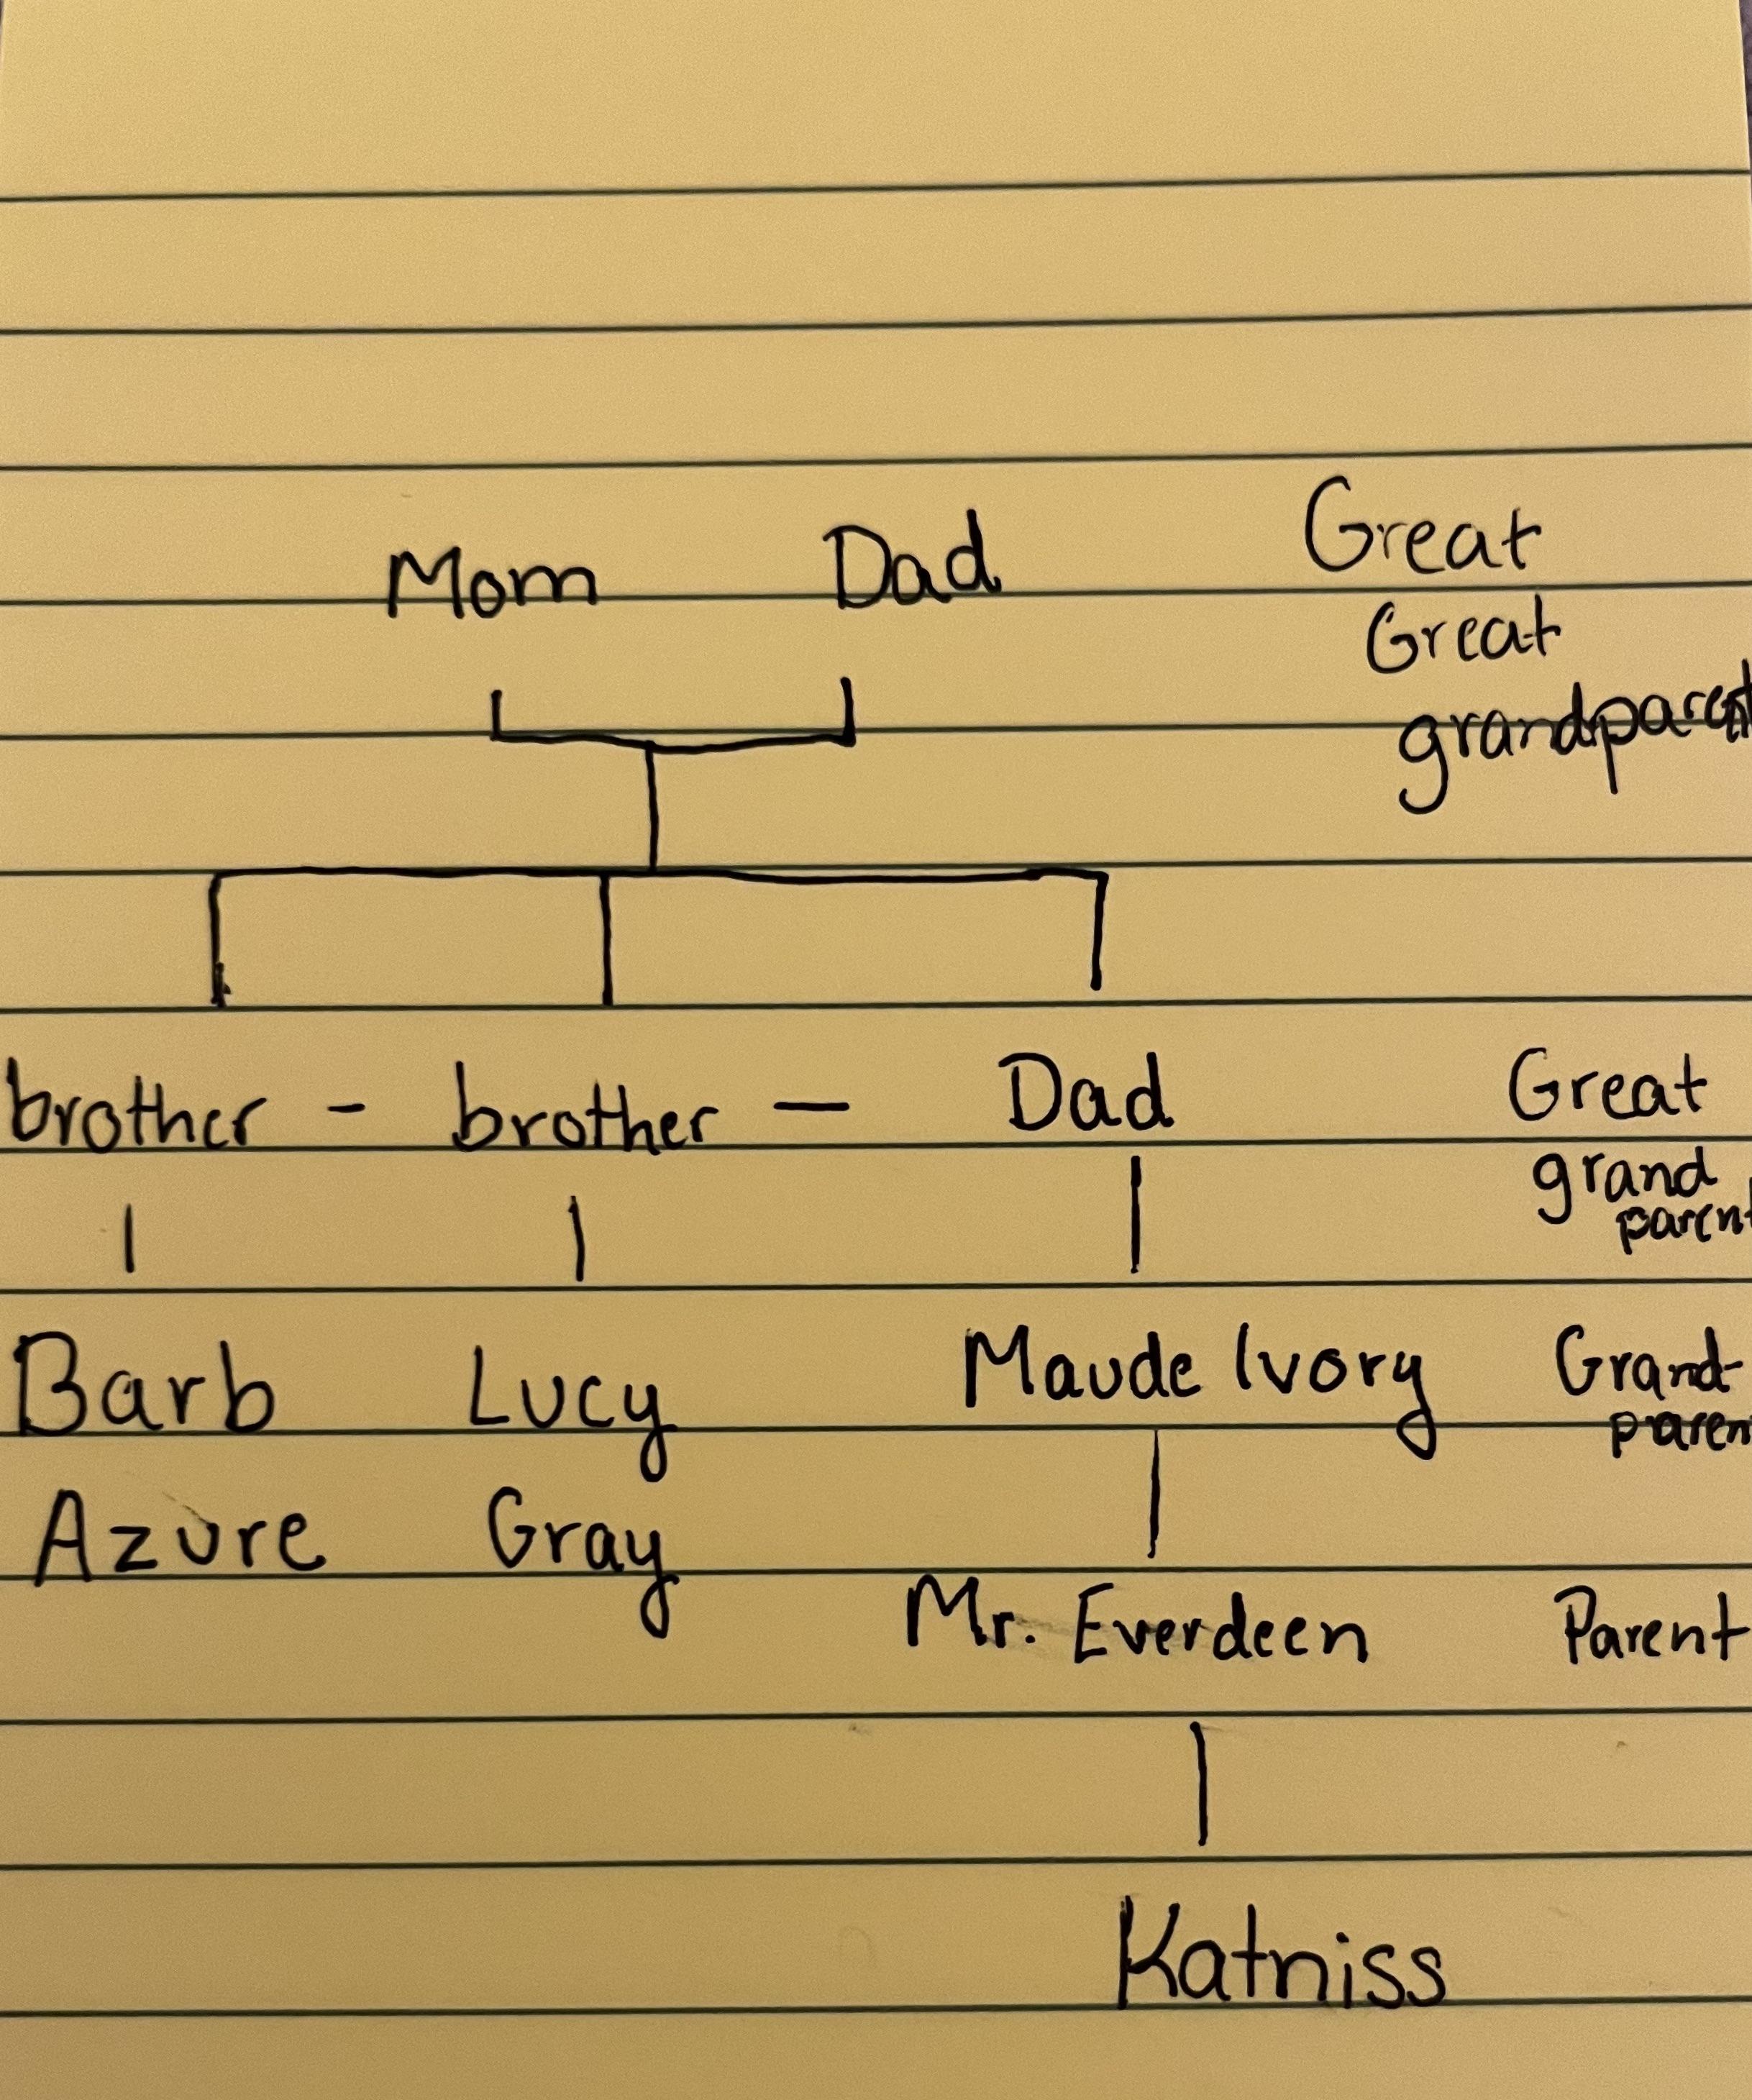 Mom Dad Great
Great
grandparent
brother - brother — Dad Great
grand
parent
Barb Lucy Maude Ivory Grand-
paren
Azure Gray
Mr. Everdeen Parent
Katniss